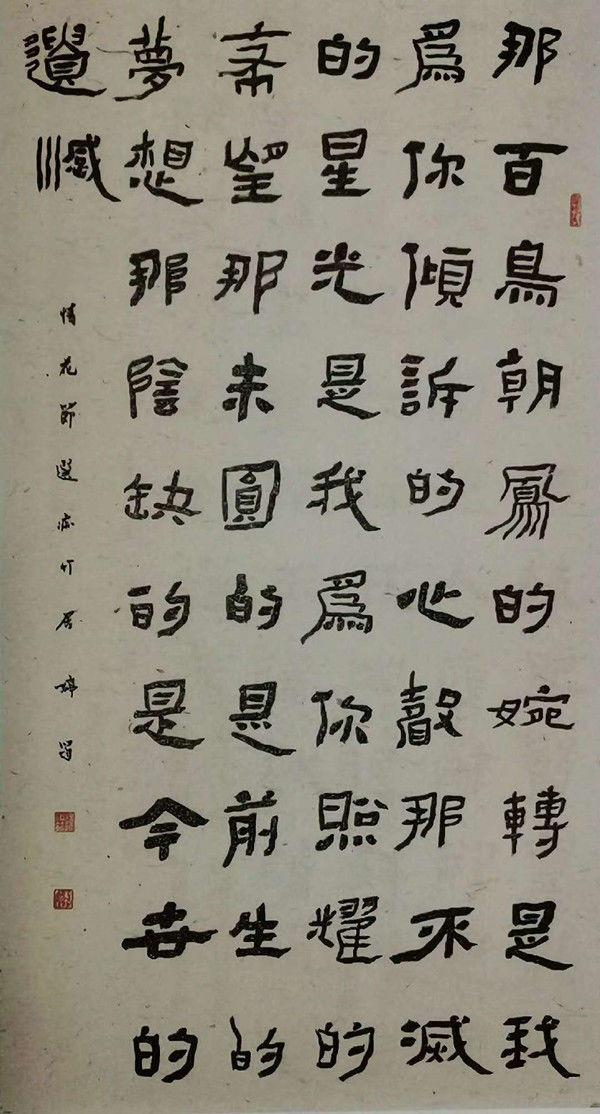 那百鳥朝鳳的婉轉是我
爲你傾訴的心聲那不滅
的星光是我爲你照耀的
希望那未圓的是前生的
夢想那陰缺的是今世的
遺憾
情花節選竹居婷